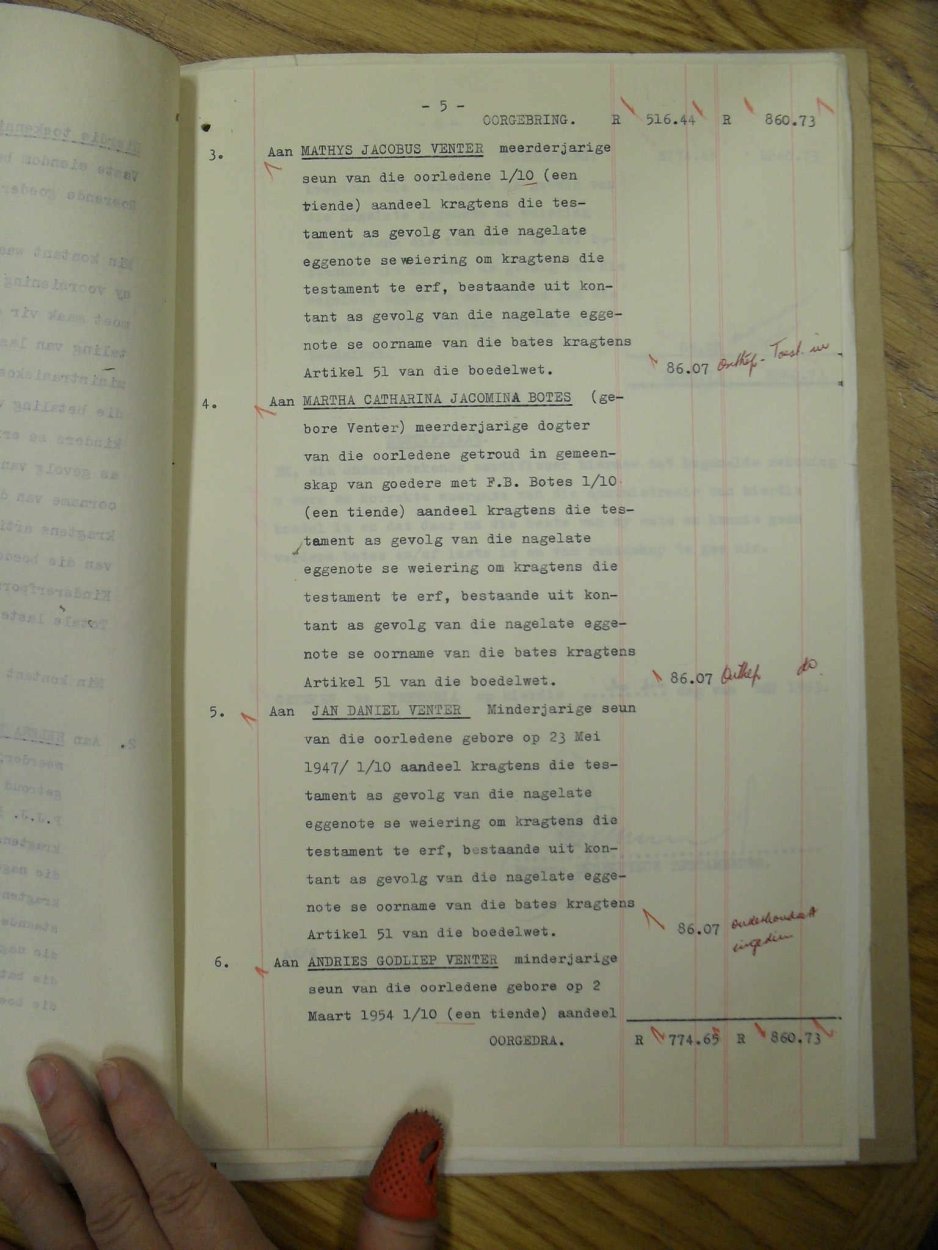 - 5 -
OORGEBRING. R 516.44 R 860.73
3. Aan MATHYS JACOBUS VENTER meerderjarige
seun van die oorledene 1/10 (een
tiende) aandeel kragtens die tes-
tament as gevolg van die nagelate
eggenote se weiering om kragtens die
testament te erf, bestaande uit kon-
tant as gevolg van die nagelate egge-
note se oorname van die bates kragtens
Artikel 51 van die boedelwet. 86.07
4. Aan MARTHA CATHARINA JACOMINA BOTES (ge-
bore Venter) meerderjarige dogter
van die oorledene getroud in gemeen-
skap van goedere met F.B. Botes 1/10
(een tiende) aandeel kragtens die tes-
tament as gevolg van die nagelate
eggenote se weiering om kragtens die
testament te erf, bestaande uit kon-
tant as gevolg van die nagelate egge-
note se oorname van die bates kragtens
Artikel 51 van die boedelwet. 86.07 do
5. Aan JAN DANIEL VENTER Minderjarige seun
van die oorledene gebore op 23 Mei
1947/ 1/10 aandeel kragtens die tes-
tament as gevolg van die nagelate
eggenote se weiering om kragtens die
testament te erf, bestaande uit kon-
tant as gevolg van die nagelate egge-
note se oorname van die bates kragtens
Artikel 51 van die boedelwet. 86.07
6. Aan ANDRIES GODLIEP VENTER minderjarige
seun van die oorledene gebore op 2
Maart 1954 1/10 (een tiende) aandeel
OORGEDRA. R 774.65 R 860.73